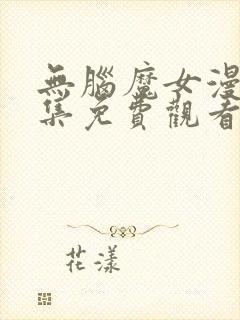 無腦魔女漫
集免費觀看
花漾